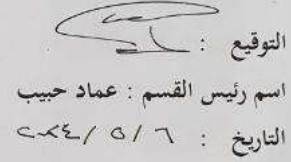 التوقيع :
اسم رئيس القسم : عماد حبيب
التاريخ : ٦ / ٥ / ٢٠٢٤